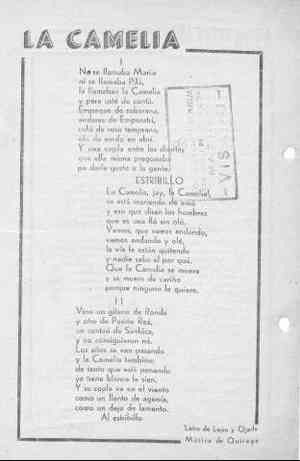 LA CAMELIA
I
No se llamaba María
ni se llamaba Pilá,
la llamaban la Camelia
y pare usté de contá.
Empaque de soberana,
andares de Emperatriz,
cutis de rosa temprana,
Y una copla entre los dientes
que ella misma pregonaba
pa darle gusto a la gente.
ESTRIBILLO
La Camelia, ¡ay, la Camelia!,
se está muriendo de
y eso que disen los hombres
que es una fló sin oló.
Vamos, que vamos andando,
vamos andando y olé,
la vía le están quitando
y nadie sabe el por qué.
Que la Camelia se muere
y se muere de cariño
porque ninguno la quiere.
II
Vino un gitano de Ronda
y otro de Puente Reá,
un cantaó de Sanlúca,
y no consiguieron ná.
Los años se van pasando
y la Camelia también;
de tanto que está penando
ya tiene blanca la sien.
Y su copla va en el viento
como un llanto de agonía,
como un dejo de lamento.
Al estribillo
Letra de León y Ojeda
Música de Quiroga
VIS